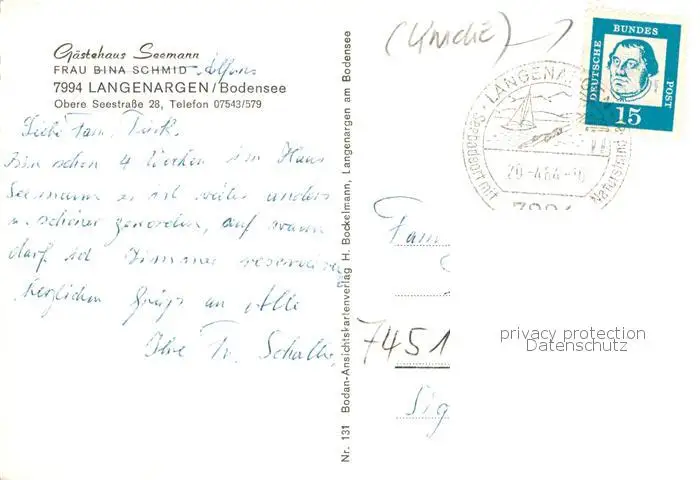 Gästehaus Seemann
FRAU BINA SCHMID Alfons
7994 LANGENARGEN/Bodensee
Obere Seestraße 28, Telefon 07543/579
Liebe Fam.
Bin schon 4 Wochen im Haus
Seemann es ist weiter anders
u. schöner geworden, auf wann
darf ich Zimmer reservieren
Herzlichen Grüße an Alle
Ihre Fr.
Nr. 131 Bodan-Ansichtskartenverlag H. Bockelmann, Langenargen am Bodensee
DEUTSCHE BUNDES POST
15
LANGENAR
Seebadeort mit
20.-4.64.-10
7994
Fam
7451
Sig
privacy protection
Datenschutz